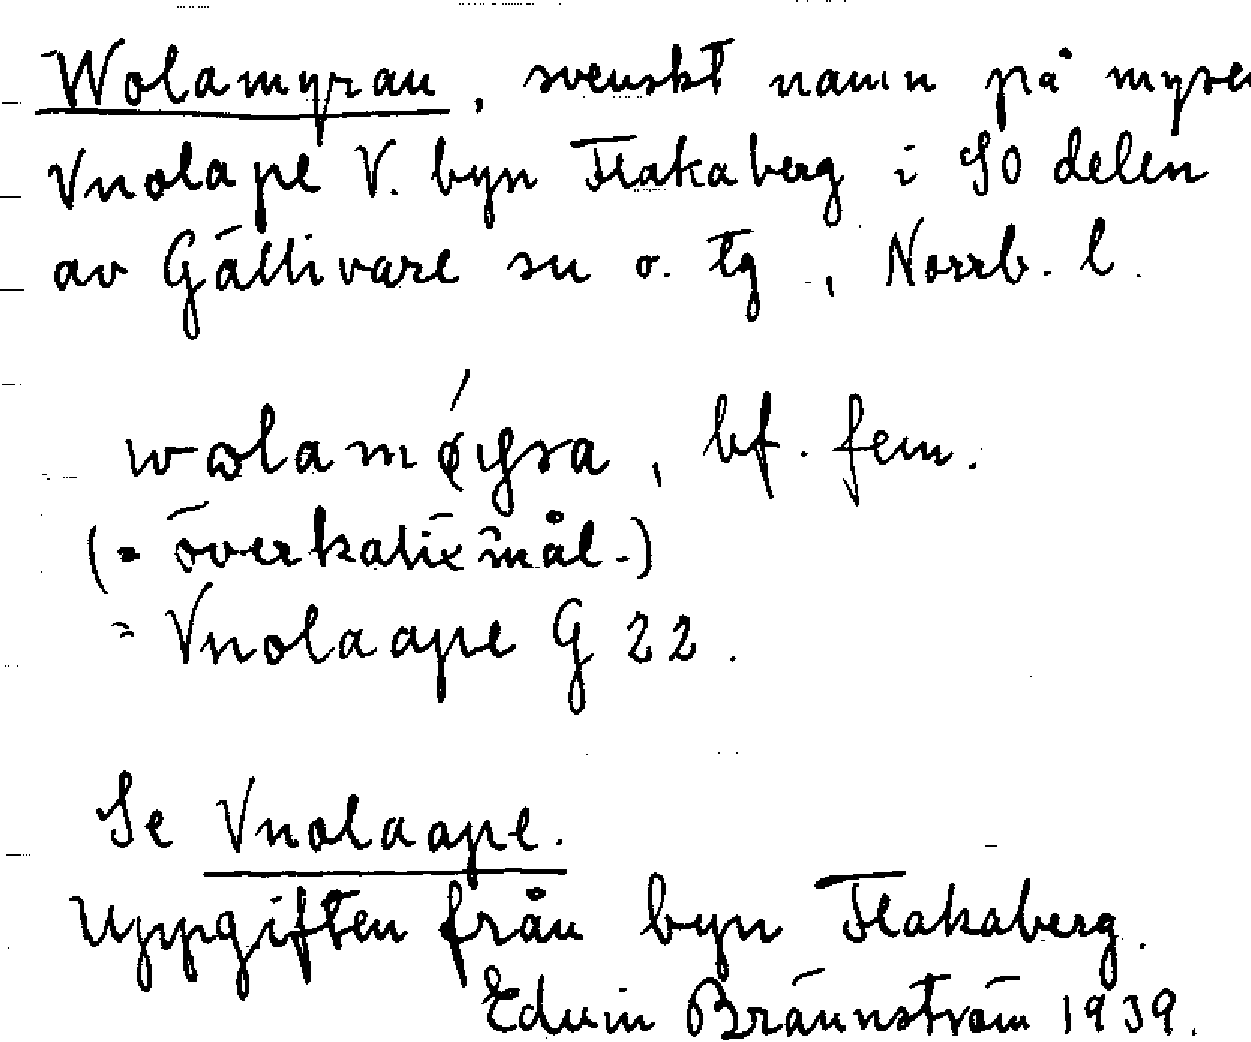 Wolamyran, svenskt namn på myren
Vuolape V. byn Flakaberg i SO delen
av Gällivare sn o. tg, Norrb. l.
wωlamǿyra, bf. fem.
(= överkalixmål.)
= Vuolaape G 22.
Se Vuolaape.
Uppgiften från byn Flakaberg.
Edvin Brännström 1939.